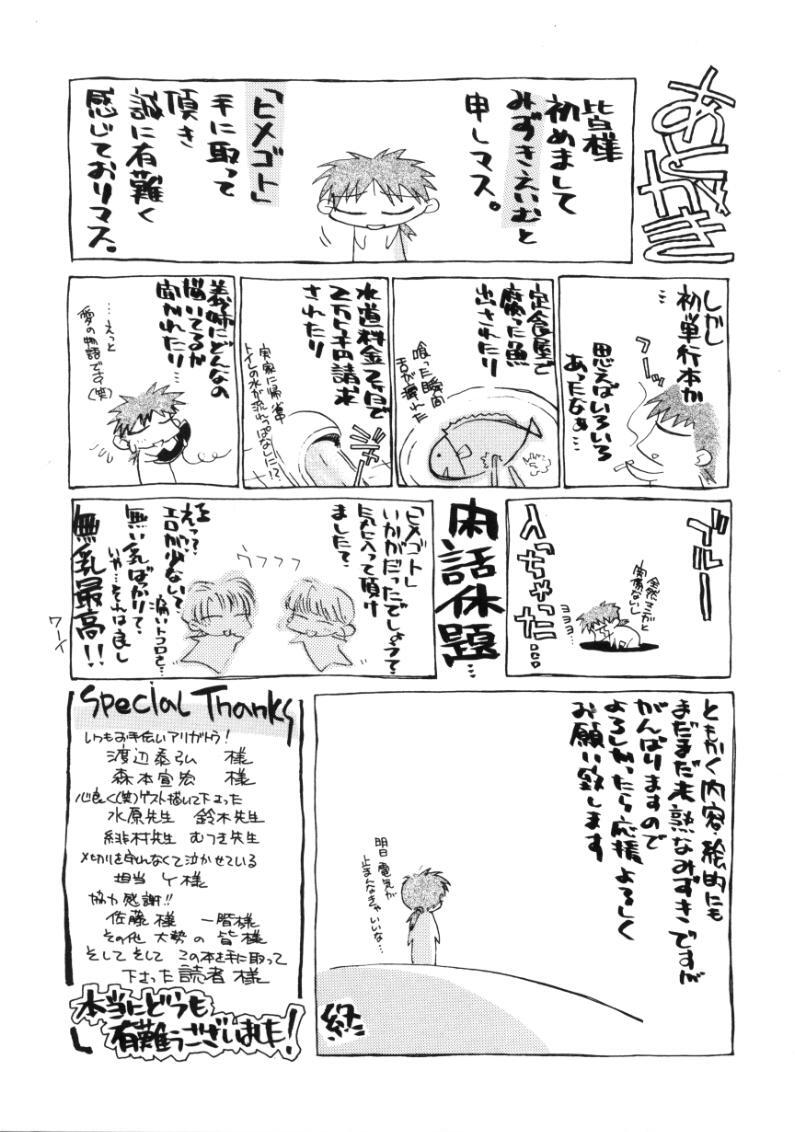 あとがき
皆様
初めまして
みずきえいむと
申しマス。
「ヒメゴト」
手に取って
頂き
誠に有難く
感じておりマス。
しかし
初単行本か
…
思えばいろいろ
あったなぁ…
フーッ
定食屋で
腐った魚
出されたり
喰った瞬間
舌が痺れた
水道料金2ヶ月で
2万5千円請求
されたり
実家に帰省中
トイレの水が流れっぱなしに!?
ジャー
義姉にどんなの
描いてるか
聞かれたり…
…えっと
愛の物語です(笑)
ブルーー
入っちゃった…
全然マンガと
関係ないし
ヨヨヨ…
閑話休題…
「ヒメゴト」
いかがだったでしょうて
気に入って頂け
ましたて?
ウフフフ
えっ?
エロが少ないて?
痛いトコロを…
無い乳ばっかりて?
いや…それは良し
無乳最高!!
ワーイ
ともかく内容・絵的にも
まだまだ未熟なみずきですが
がんばりますので
よろしかったら応援よろしく
お願い致します
明日電気が
止まんなきゃいいな…
終
Special Thanks
いつもお手伝いアリガトう!
渡辺泰弘 様
森本宣宏 様
心良く(笑)ゲスト描いて下さった
水原先生 鈴木先生
緋村先生 むつき先生
〆切りを守れなくて泣かせている
担当 Y様
協力感謝!!
佐藤様 一階様
その他 大勢の 皆様
そして そして この本を手に取って
下さった 読者 様
本当にどうも
有難うございました!